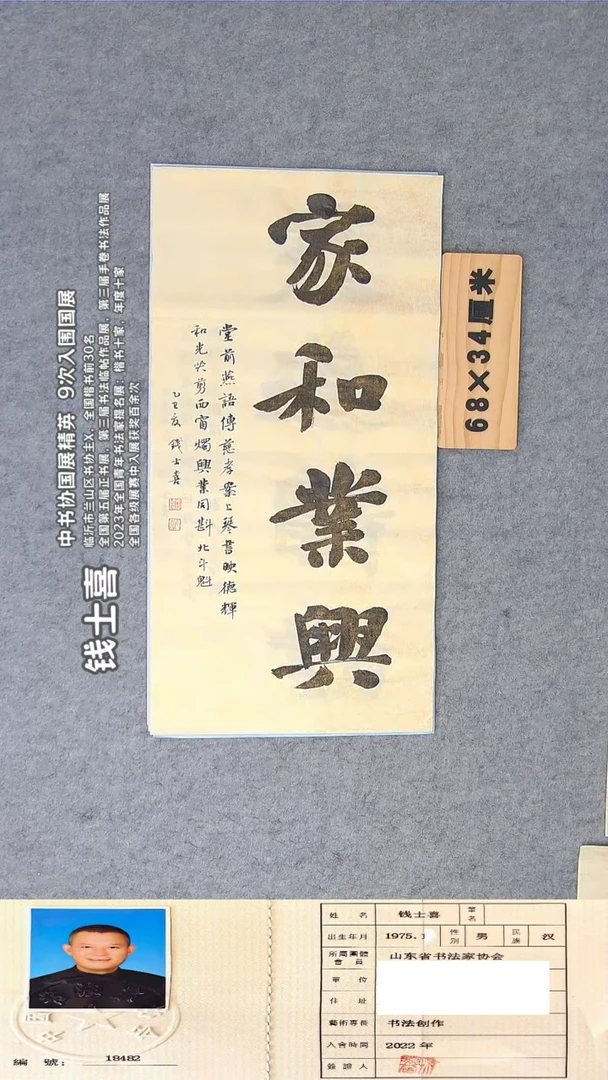 家和業興
堂前燕語傳慈孝案上琴書映德輝
和光共剪西窗燭興業同斟北斗魁
乙巳夏 錢士喜
68×34厘米
钱士喜
中书协国展精英 9次入围国展
临沂市兰山区书协主X、全国楷书前30名
全国第五届正书展、第三届书法临帖作品展、第三届手卷书法作品展
2023年全国青年书法家提名展：楷书十家、年度十家
全国各级展赛中入展获奖百余次
編 號: 18482
姓 名 钱士喜 筆名
出生年月 1975.1 性別 男 民族 汉
所屬團體會員 山东省书法家协会
單 位
住 址
藝術專長 书法创作
入會時間 2022 年
簽證人